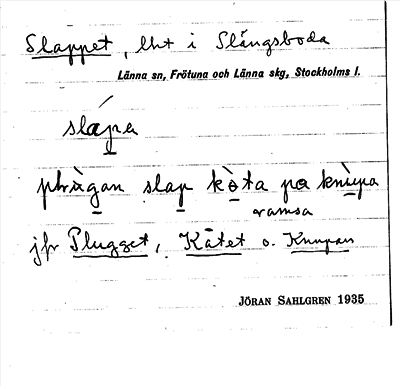 Slappet, lht i Slängsboda
Länna sn, Frötuna och Länna skg, Stockholms l.
slápa
phrùgan slap kòta pa knìpa
ramsa
jfr Plugget, Kåtet o. Knupan
JÖRAN SAHLGREN 1935